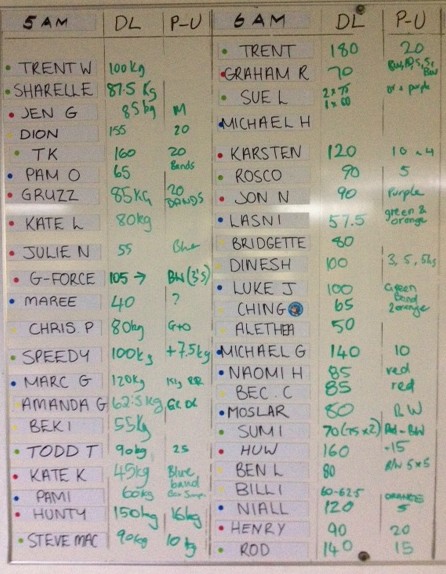 5 AM DL P-U
TRENT W 100kg
SHARELLE 87.5 kg
JEN G 85kg M
DION 155 20
TK 160 20
PAM O 65 Bands
GRUZZ 85KG 20 BANDS
KATE L 80kg
JULIE N 55
G-FORCE 105 → BW (3's)
MAREE 40 ?
CHRIS P 80kg
SPEEDY 100kg +7.5kg
MARC G 120kg
AMANDA G 62.5kg
BEKI 55kg
TODD T 90kg 25
KATE K 45kg Blue band
PAMI 60kg
HUNTY 150kg 16kg
STEVE MAC 90kg 10kg
6 AM DL P-U
TRENT 180 20
GRAHAM R 70
SUE L 2x75 1x80 purple
MICHAEL H
KARSTEN 120 10
ROSCO 90 5
JON N 90 Purple
LASNI 57.5 green & orange
BRIDGETTE 80
DINESH 100 3, 5, 5kg
LUKE J 100 Green Band
CHING 65 2 orange
ALETHEA 50
MICHAEL G 140 10
NAOMI H 85 red
BEC. C 85 red
MOSLAR 80 BW
SUMI 70 (75 x2)
HUW 160 15
BEN L 80 BW 5x5
BILLI 60-62.5 ORANGE
NIALL 120 5
HENRY 90 20
ROD 140 15